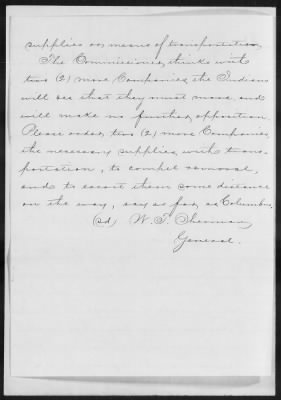 supplies or means of transportation.
The Commissioner thinks with
two (2) more Companies, the Indians
will see that they must move and
will make no further opposition.
Please order two (2) more Companies,
the necessary supplies, with trans-
portation, to compel removal,
and to escort them some distance
on the way, say as far as Columbus.
(sd) W. T. Sherman,
General.